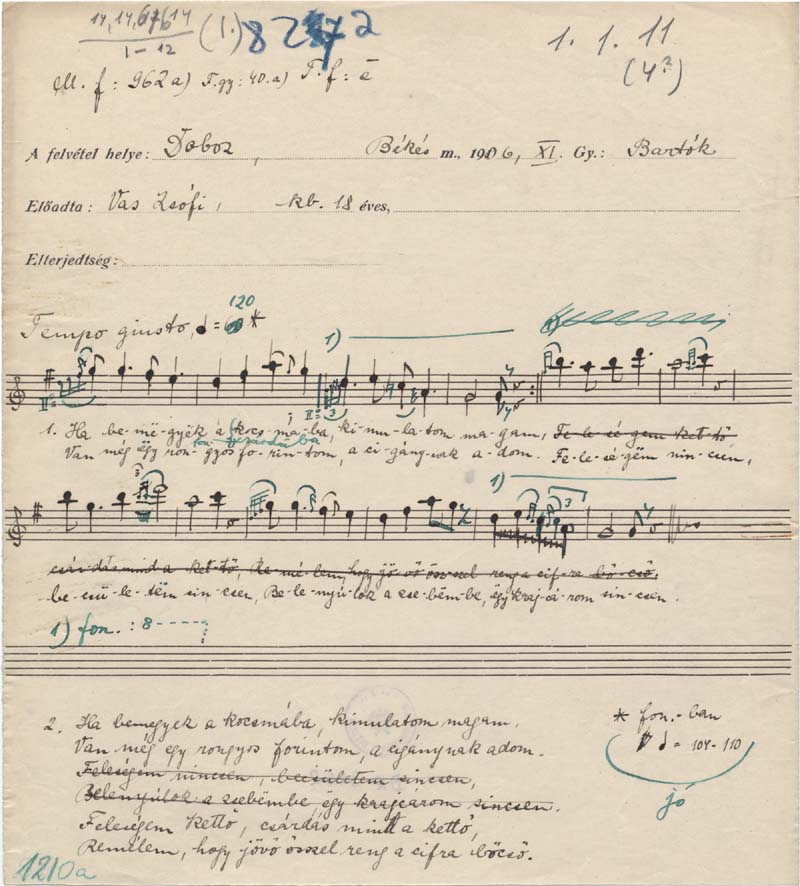 14, 14, 6+6 14
1-12
(1.)
1. 1. 11
(4?)
M. f: 962a) F. gy: 40. a) T. f: ē
A felvétel helye: Doboz, Békés m., 1906, XI. Gy.: Bartók
Előadta: Vas Zsófi, kb. 18 éves,
Elterjedtség:
120
Tempo giusto, *
1)
II=
1. Ha be-më-gyëk a kocs-má-ba, ki-mu-la-tom ma-gam, Fe-le-sé-gem ket-tő
fon. csárdába
Van még ëgy ron-gyos fo-rin-tom, a ci-gány-nak a-dom. Fe-le-sé-gëm nin-csen,
3
1)
3
csár-dás mind a ket-tő, Re-mé-lem, hogy jö-vő ősz-szel reng a cif-ra bö-cső.
be-csü-le-tëm sin-csen, Be-le-nyú-lok a zse-bëm-be, ëgy kraj-cá-rom sin-csen.
1) fon.: 8
2. Ha bemegyek a kocsmába, kimulatom magam,
Van még egy rongyos forintom, a cigánynak adom.
Feleségem nincsen, becsületem sincsen,
Belenyúlok a zsebembe, egy krajcárom sincsen.
Feleségem kettő, csárdás mint a kettő,
Remélem, hogy jövő ősszel reng a cifra böcső.
* fon.-ban
= 104-110
jó
1210a